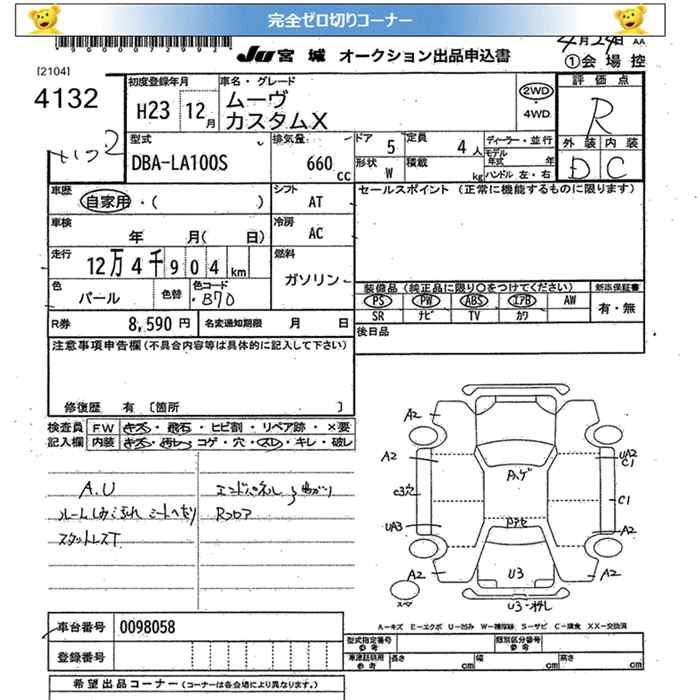 完全ゼロ切りコーナー
JU 宮城 オークション出品申込書
4月24日 AA
①会場控
[2104]
4132
初度登録年月
H23 12月
車名・グレード
ムーヴ
カスタムX
2WD
・
4WD
評価点
R
外装 内装
D C
型式
DBA-LA100S
排気量
660 cc
ドア 5
定員 4人
ディーラー・並行
モデル年式 年
形状 W
積載 kg
ハンドル 左・右
車歴
自家用・( )
シフト
AT
セールスポイント (正常に機能するものに限ります)
車検
年 月( 日)
冷房
AC
走行
12万4千904km
燃料
ガソリン
色
パール
色替
色コード
・B70
装備品 (純正品に限り○をつけてください)
新車保証書
PS PW ABS エアB AW
有・無
SR ナビ TV カワ
R券 8,590円
名変通知期限 月 日
後日品
注意事項申告欄(不具合内容等は具体的に記入して下さい)
修復歴 有 〔箇所 〕
検査員 FW キズ・飛石・ヒビ割・リペア跡・×要
記入欄 内装 キズ・汚レ・コゲ・穴・スレ・キレ・破レ
A.U
スタットレスT
エンドパネル
Rフロア
A2
A2
A2
UA2
C1
Aハゲ
C3穴
C1
UA3
A2
A2
U3
A2
スペア
U3
A－キズ E－エクボ U－凹み W－補修跡 S－サビ C－腐食 XX－交換済
車台番号 0098058
登録番号
型式指定番号
参考
類別区分番号
参考
車庫証明用
参考
長さ cm
幅 cm
高さ cm
希望出品コーナー (コーナーは各会場により異なります。)